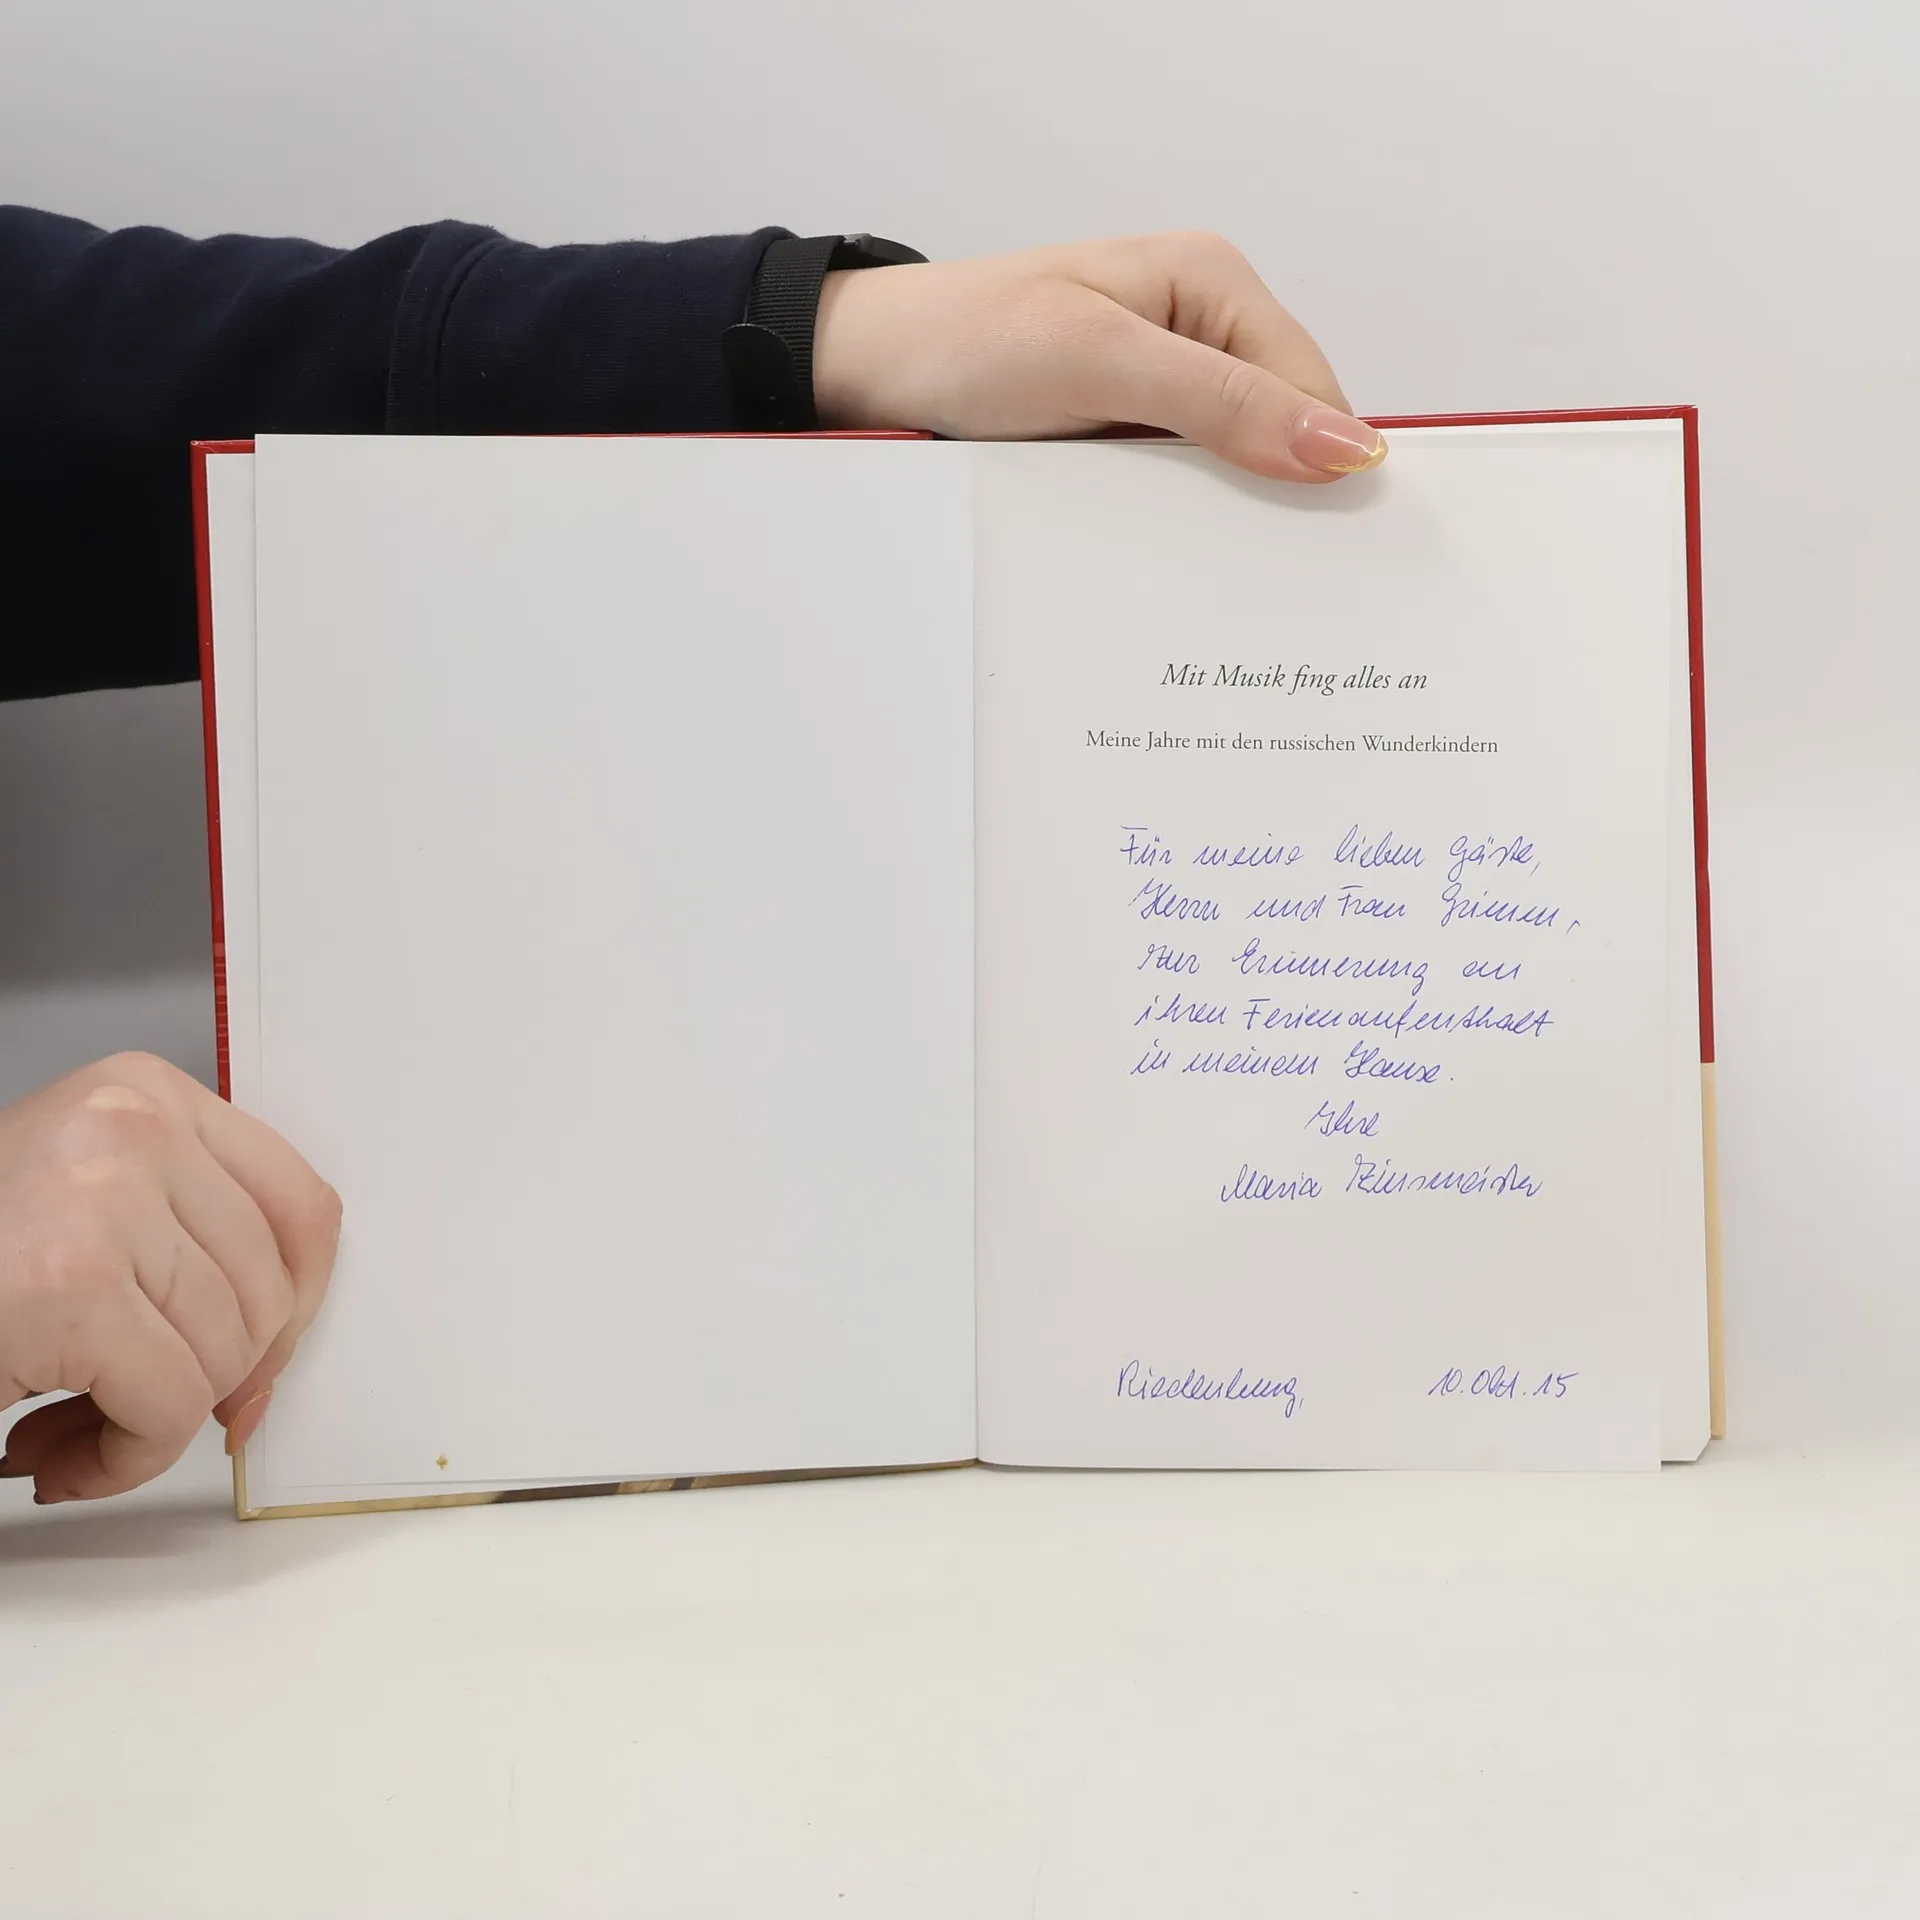 Mit Musik fing alles an
Meine Jahre mit den russischen Wunderkindern
Für meine lieben Gäste,
Herrn und Frau Grimm,
zur Erinnerung an
ihren Ferienaufenthalt
in meinem Hause.
Ihre
Maria Zinsmeister
Riedenburg,
10. Okt. 15